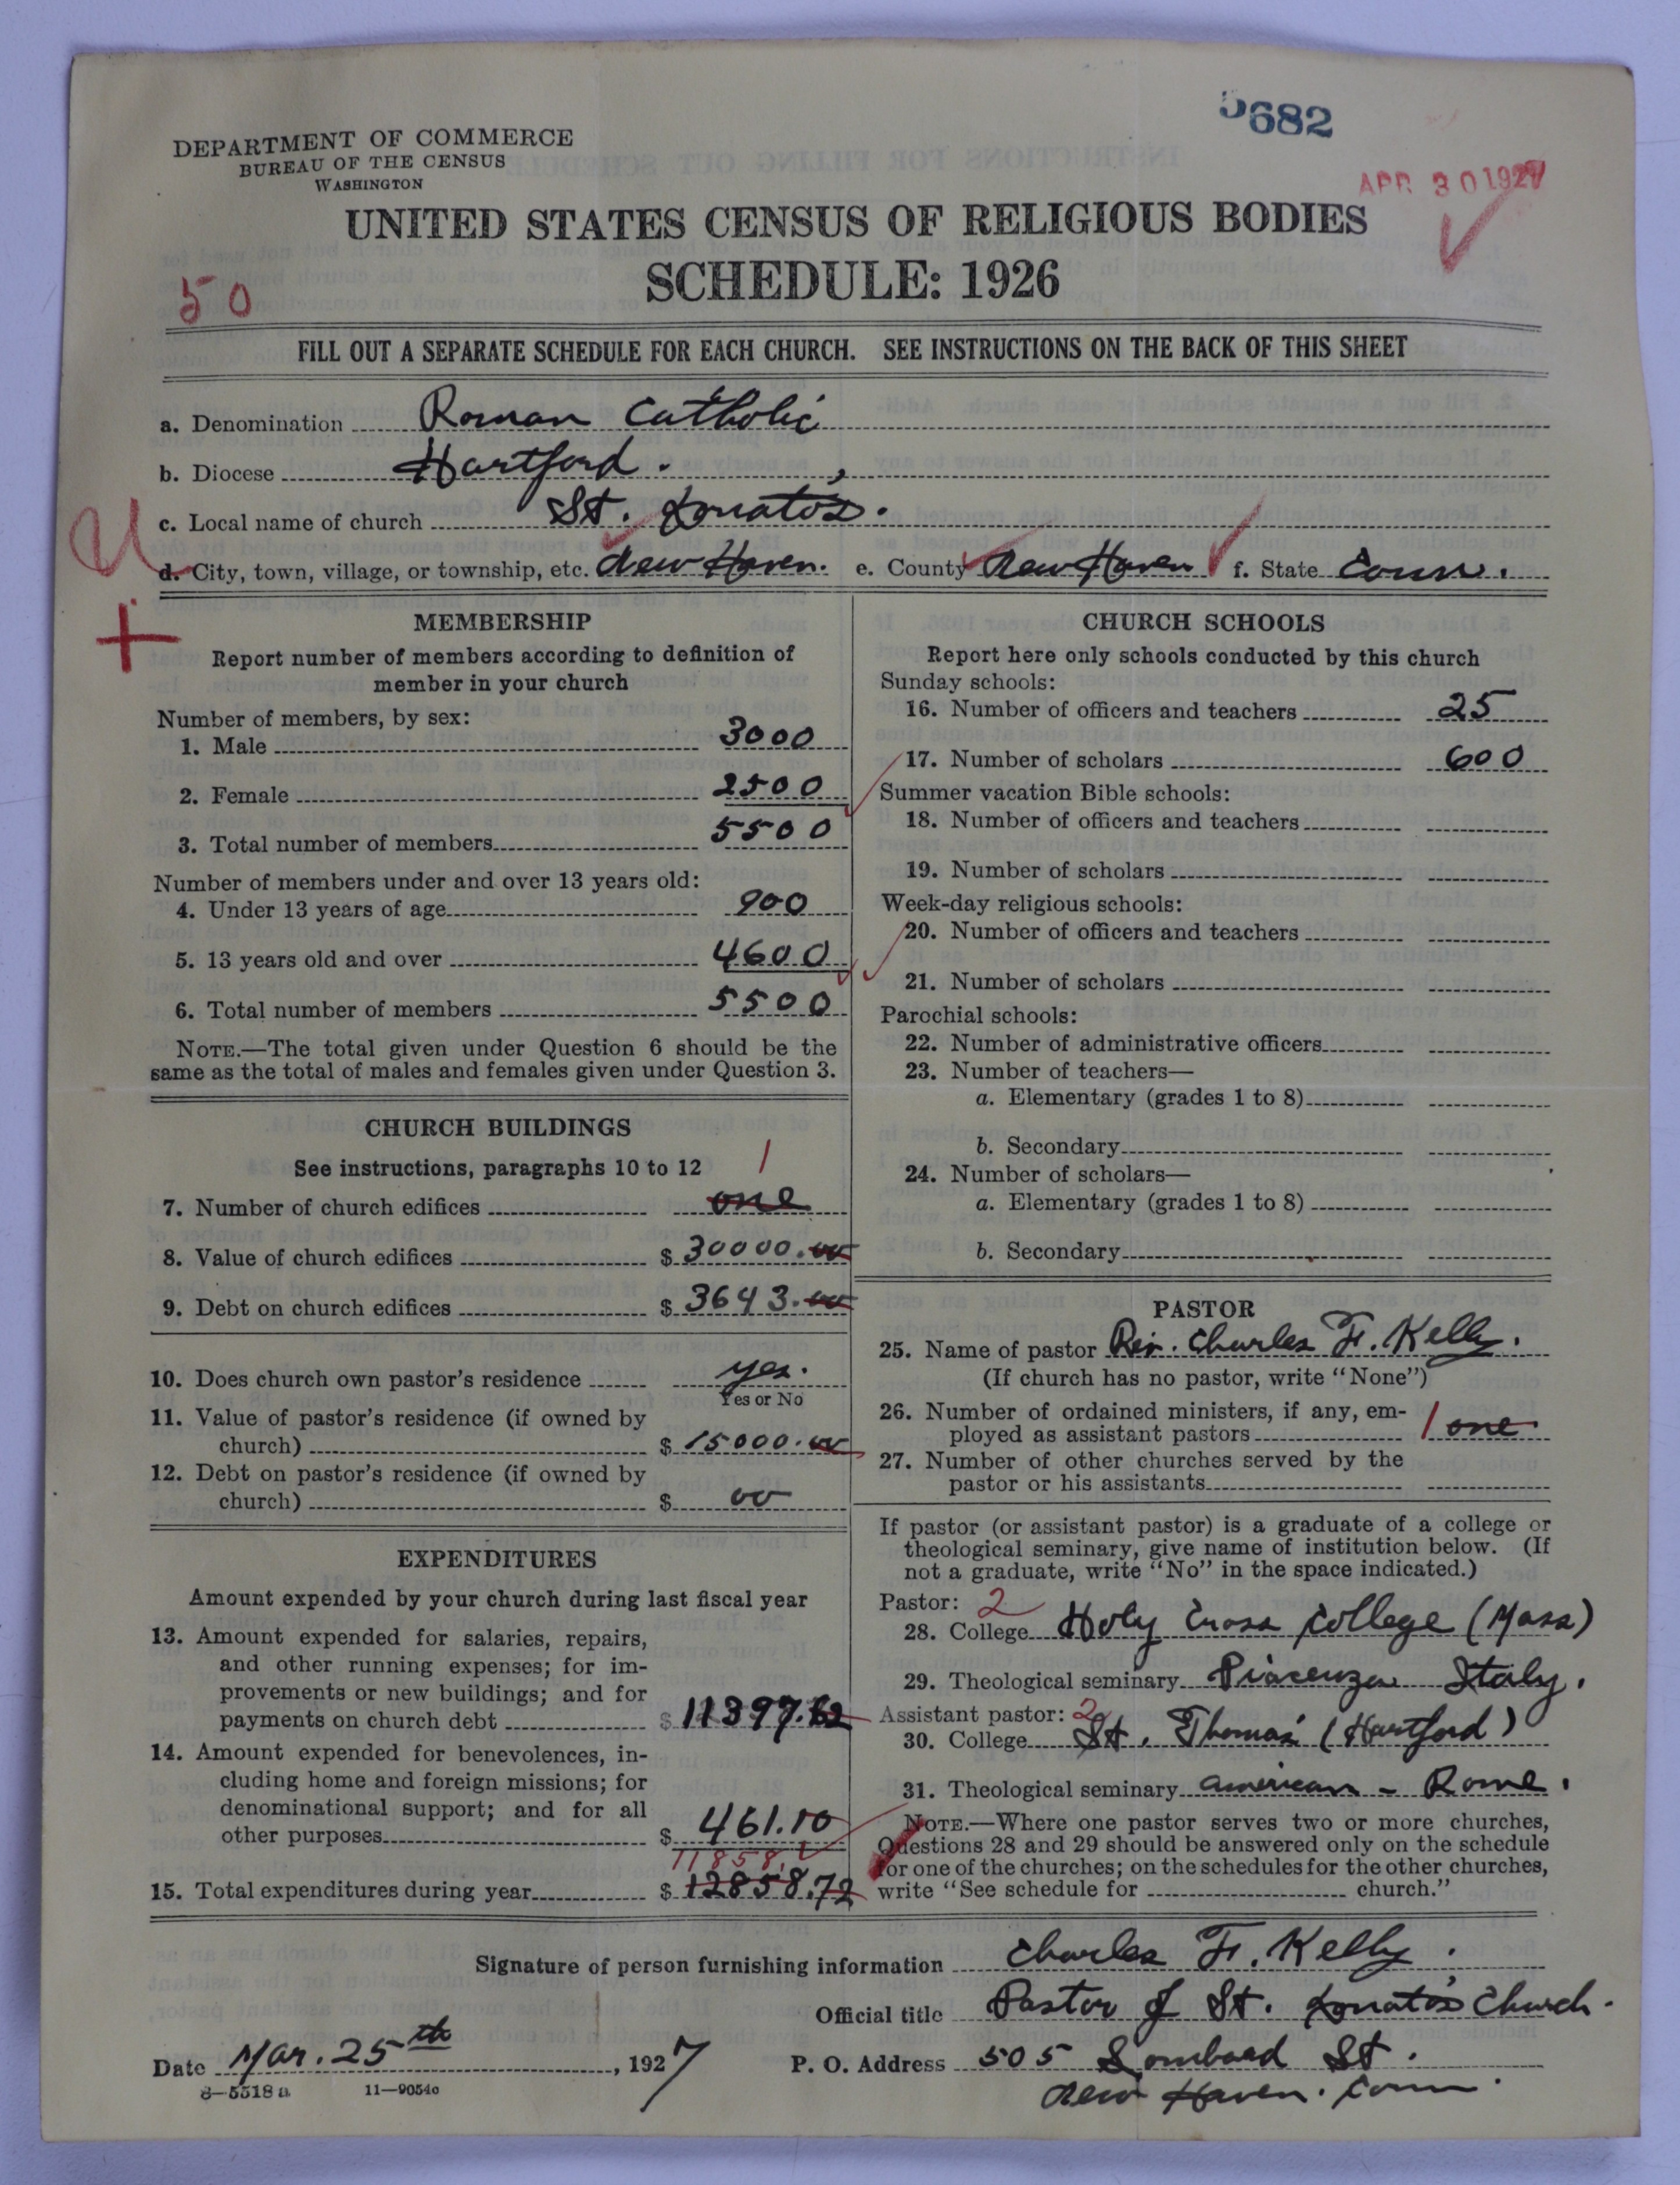 5682
DEPARTMENT OF COMMERCE
BUREAU OF THE CENSUS
WASHINGTON
APR 30 1927
UNITED STATES CENSUS OF RELIGIOUS BODIES
SCHEDULE: 1926
50
FILL OUT A SEPARATE SCHEDULE FOR EACH CHURCH. SEE INSTRUCTIONS ON THE BACK OF THIS SHEET
a. Denomination Roman Catholic
b. Diocese Hartford.
c. Local name of church St. Donato's.
d. City, town, village, or township, etc. New Haven. e. County New Haven f. State Conn.
MEMBERSHIP
Report number of members according to definition of
member in your church
Number of members, by sex:
1. Male 3000
2. Female 2500
3. Total number of members 5500
Number of members under and over 13 years old:
4. Under 13 years of age 900
5. 13 years old and over 4600
6. Total number of members 5500
NOTE.—The total given under Question 6 should be the
same as the total of males and females given under Question 3.
CHURCH BUILDINGS
See instructions, paragraphs 10 to 12
1
7. Number of church edifices one
8. Value of church edifices $ 30000.00
9. Debt on church edifices $ 3643.00
10. Does church own pastor's residence yes.
Yes or No
11. Value of pastor's residence (if owned by
church) $ 15000.00
12. Debt on pastor's residence (if owned by
church) $ 00
EXPENDITURES
Amount expended by your church during last fiscal year
13. Amount expended for salaries, repairs,
and other running expenses; for im-
provements or new buildings; and for
payments on church debt $ 11397.62
14. Amount expended for benevolences, in-
cluding home and foreign missions; for
denominational support; and for all
other purposes $ 461.10
11858
15. Total expenditures during year $ 12858.72
CHURCH SCHOOLS
Report here only schools conducted by this church
Sunday schools:
16. Number of officers and teachers 25
17. Number of scholars 600
Summer vacation Bible schools:
18. Number of officers and teachers
19. Number of scholars
Week-day religious schools:
20. Number of officers and teachers
21. Number of scholars
Parochial schools:
22. Number of administrative officers
23. Number of teachers—
a. Elementary (grades 1 to 8)
b. Secondary
24. Number of scholars—
a. Elementary (grades 1 to 8)
b. Secondary
PASTOR
25. Name of pastor Rev. Charles F. Kelly.
(If church has no pastor, write "None")
26. Number of ordained ministers, if any, em-
ployed as assistant pastors 1 one
27. Number of other churches served by the
pastor or his assistants
If pastor (or assistant pastor) is a graduate of a college or
theological seminary, give name of institution below. (If
not a graduate, write "No" in the space indicated.)
Pastor: 2
28. College Holy Cross College (Mass)
29. Theological seminary Piacenza Italy.
Assistant pastor: 2
30. College St. Thomas' (Hartford)
31. Theological seminary American - Rome.
NOTE.—Where one pastor serves two or more churches,
Questions 28 and 29 should be answered only on the schedule
for one of the churches; on the schedules for the other churches,
write "See schedule for church."
Signature of person furnishing information Charles F. Kelly.
Official title Pastor of St. Donato's Church.
Date Mar. 25th, 1927 P. O. Address 505 Lombard St.
New Haven. Conn.
8—5518 a 11—9054c